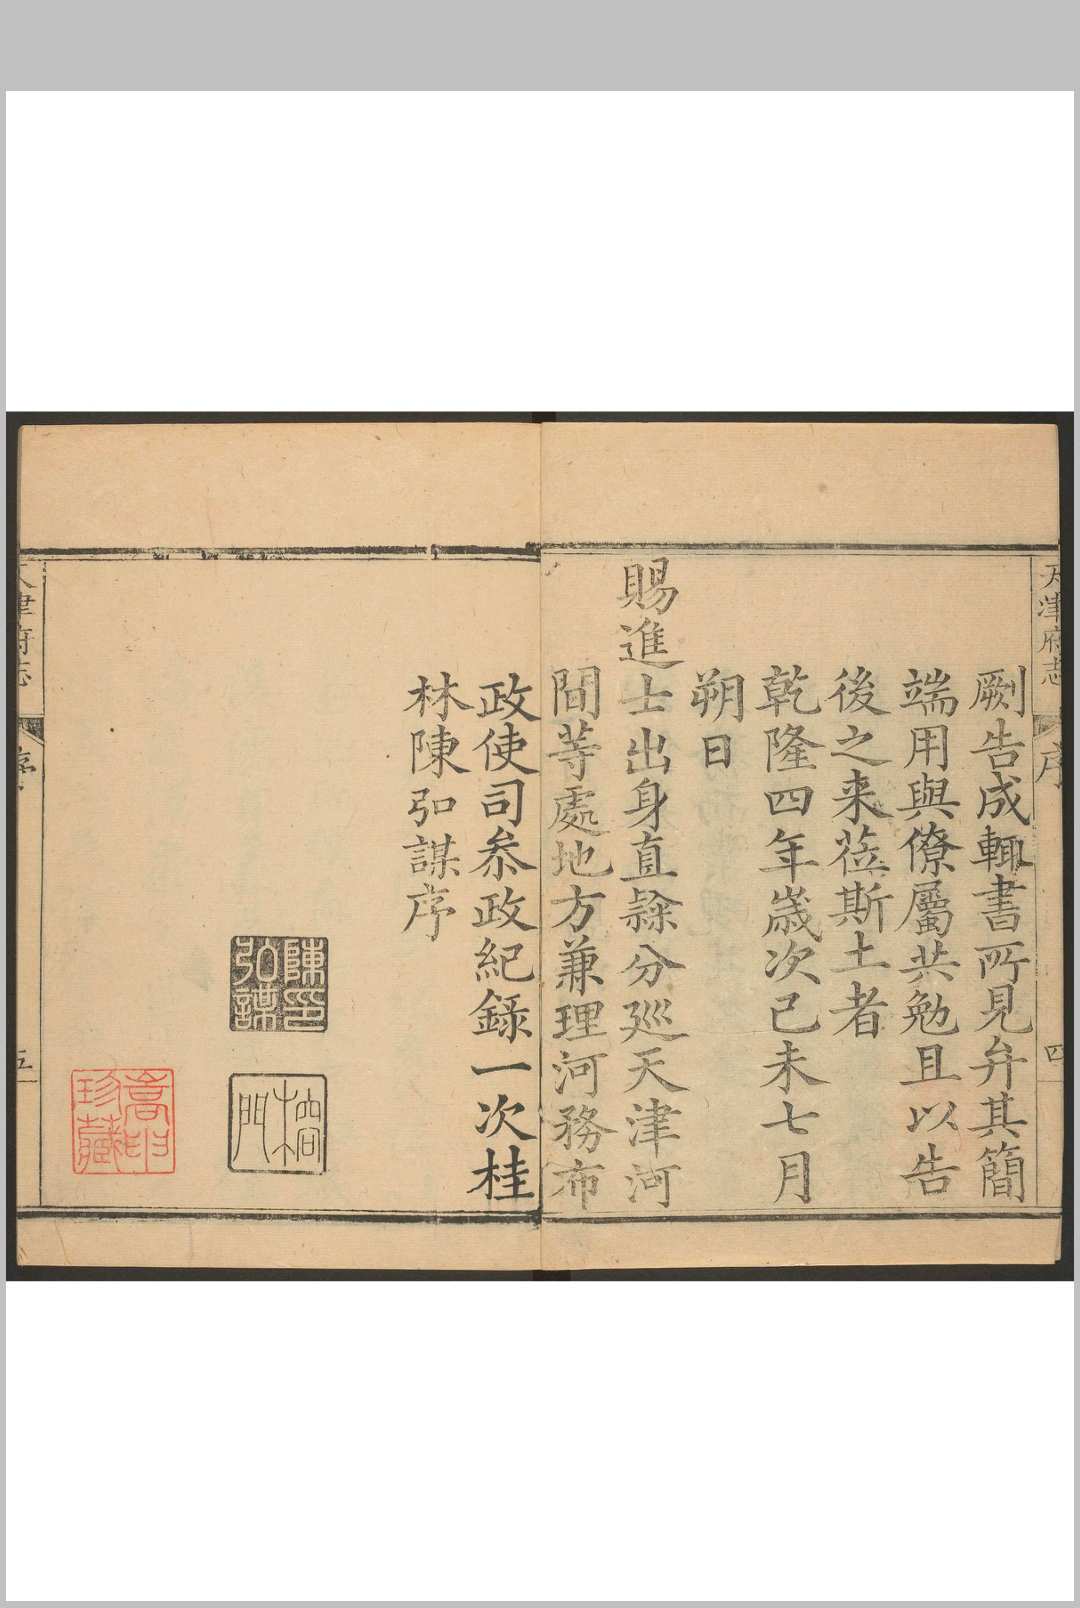 天津府志
序
四
劂告成輒書所見弁其簡
端用與僚屬共勉且以告
後之来莅斯土者
乾隆四年歲次己未七月
朔日
賜進士出身直隷分廵天津河
間等處地方兼理河務布
政使司叅政紀錄一次桂
林陳弘謀序
陳印弘謀
榕門
珍藏
天津府志
序
五